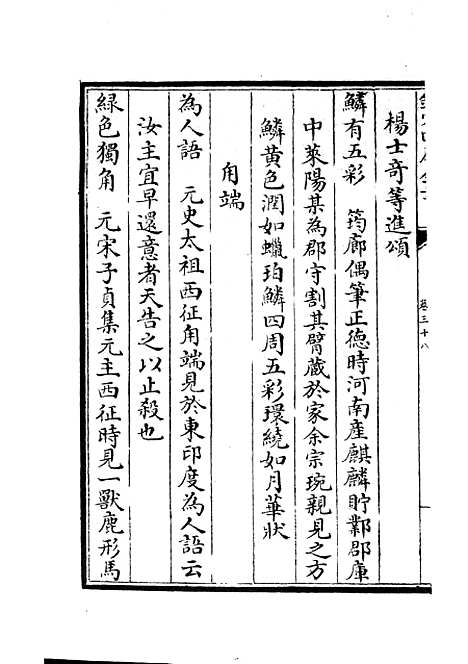 卷三十八
楊士奇等進頌
鱗有五彩　筠廊偶筆正德時河南産麒麟貯鄴郡庫
中萊陽某為郡守割其臂蔵於家余宗琬親見之方
鱗黄色潤如蠟珀鱗四周五彩環繞如月華狀
甪端
為人語　元史太祖西征甪端見於東印度為人語云
汝主宜早還意者天告之以止殺也
緑色獨角　元宋子貞集元主西征時見一獸鹿形馬